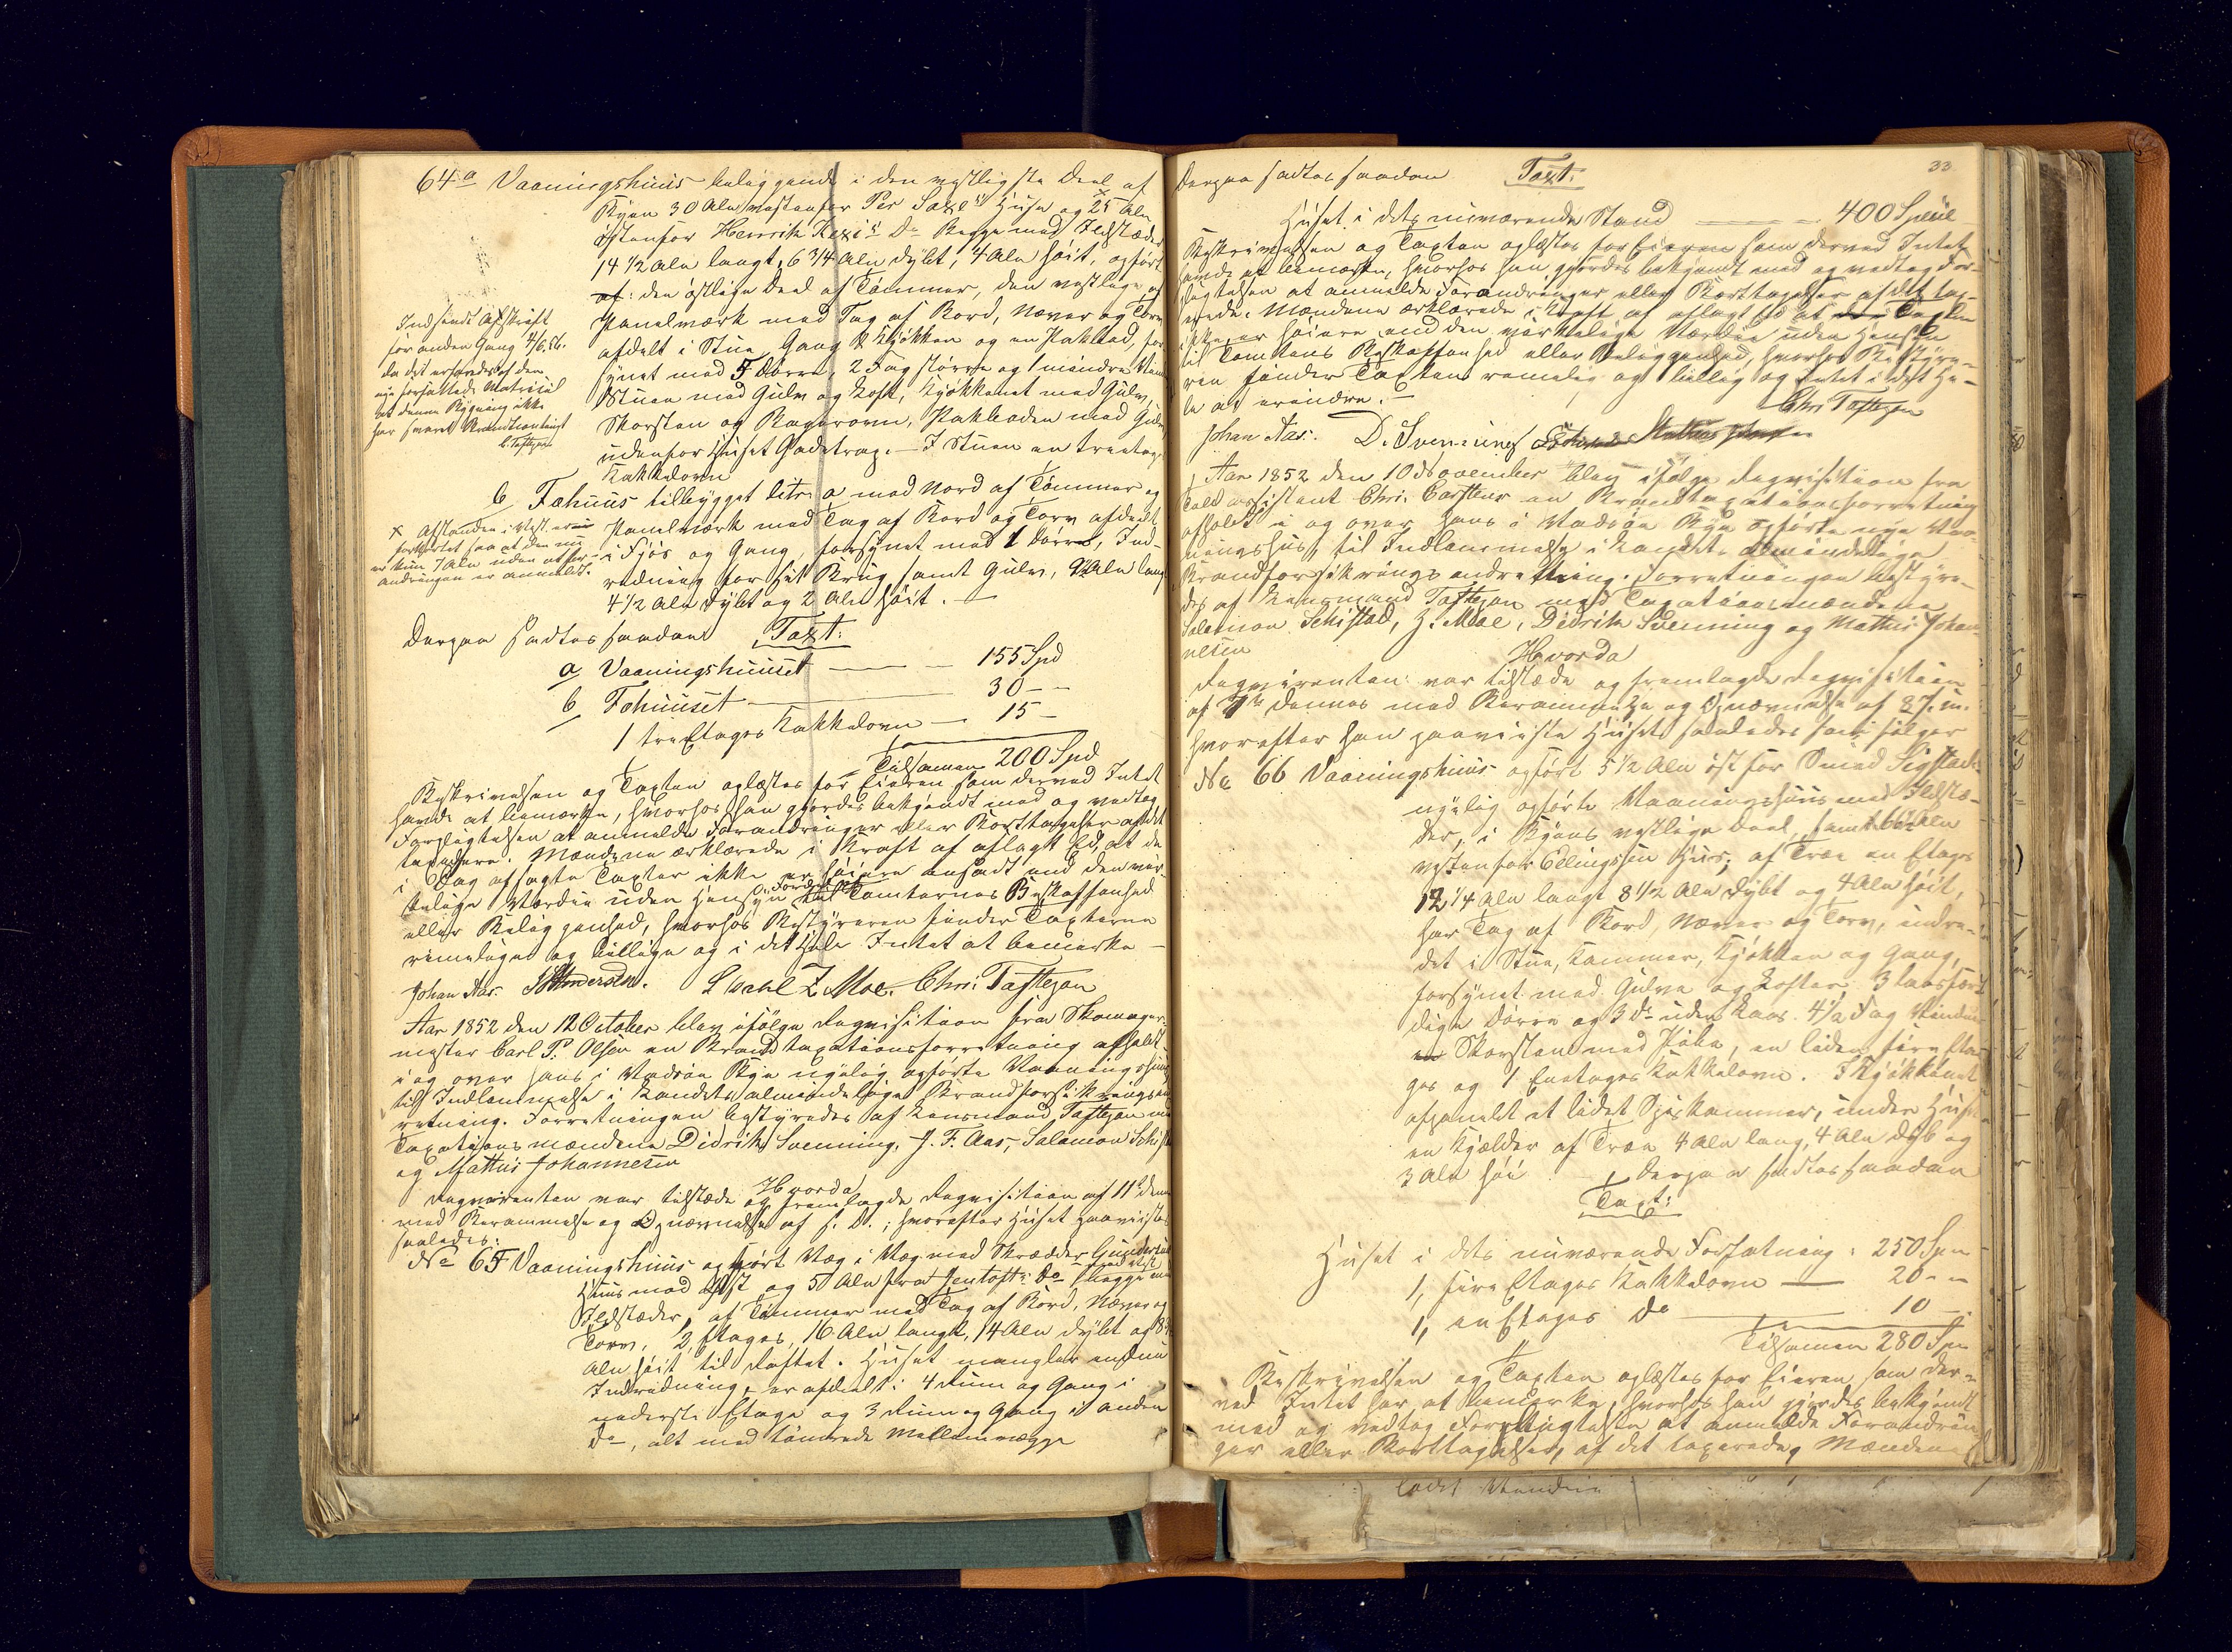 64 a Vaaningshuus beliggende i den vestligste Deel af
Byen 30 Alen vestenfor Per Saxes Huse og × 25 Alen
østenfor Henrik Kexis Do Begge med Ildstæder
14 1/2 Alen langt, 6 3/4 Alen dybt, 4 Alen høit, opført
af: den østlige Deel af Tømmer, den vestlige af
Panelværk med Tag af Bord, Næver og Torv
afdelt i Stue, Gang & Kjøkken og en Pakbod, for
synet med 5 Dørre, 2 Fag større og 1 mindre
Stuen med Gulv og Loft, Kjøkkenet med Gulv,
Skorsten og Bagerovn, Pakboden med Gulv
udenfor Huset Gadetrap. – I Stuen en treetages
Kakkelovn
Indsendt Afskrift
for anden Gang 4/6.56.
da det erfaredes af den
nye forfattede Matricul
at denne Bygning ikke
har svaret Brandcontingent
C. Taftezon
b Fæhuus tilbygget litr. a mod Nord af Tømmer og
Panelværk med Tag af Bord og Torv afdeelt
i Fjøs og Gang, forsynet med 1 Dørre, Ind-
redning for sit Brug samt Gulv, 9 Alen langt
4 1/2 Alen dybt og 2 Alen høit. –
× Afstanden i Vest er
forkortet saa at den nu
er kun 7 Alen uden at for-
andringen er anmeldt.
Derpaa sattes saadan Taxt:
a Vaaningshuuset — 155 Spd
b Fæhuuset — 30 – –
1 tre Etages Kakkelovn — 15 –
Tilsamen 200 Spd
Beskrivelsen og Taxten oplæstes for Eieren som derved Intet
havde at bemærke, hvorhos han gjordes bekjendt med og vedtog
Forpligtelsen at anmelde Forandringer eller Borttagelser af det
taxerte. Mændene erklærede i Kraft af aflagt Ed, at de
i Dag afsagte Taxter ikke er høiere ansadt end den vir-
kelige Værdie uden Hensyn til Tomternes Beskaffenhed
eller Beliggenhed, hvorhos Bestyreren finder Taxterne
rimelige og billige og i det Hele Intet at bemærke –
Johan Aas. Andersen. L Z Moe. Chr: Taftezon
Aar 1852 den 12 October blev ifølge Reqvisition fra Skomager-
mester Carl P. Olsen en Brandtaxationsforretning afholdt
i og over hans i Vadsøe Bye nyelig opførte Vaaningshuus
til Indlemmelse i Landets almindelige Brandforsikringsind
retning. Forretningen bestyredes af Lensmand Taftezon med
Taxationsmændene Didrik Svenning, J. F. Aas, Salamon Schistad
og Mathis Johannesen
Hvorda
Reqvirenten var tilstæde og fremlagde Reqvisition af 11te dennes
med Berammelse og Opnævnelse af s. D.; hvorefter Huset paavistes
saaledes:
No 65 Vaaningshuus opført Væg i Væg med Skrædder
Huus mod Øst og 5 Alen fra Jentoft: Do mod Vest begge med
Ildstæder, af Tømmer med Tag af Bord, Næver og
Torv, 2 Etages, 16 Alen langt, 14 Alen dybt og 8
Alen høit til Røstet. Huset mangler endnu
Indredning, er afdeelt i 4 Rum og Gang i
nederste Etage og 3 Rum og Gang i anden
Do, alt med tømrede Mellemvægge
33
Derpaa sattes saadan Taxt:
Huset i dets nuværende Stand — 400 Spd
Beskrivelsen og Taxten oplæstes for Eieren som derved Intet
havde at bemærke, hvorhos han gjordes bekjendt med og vedtog For-
pligtelsen at anmelde Forandringer eller Borttagelser af det tax-
erede. Mændene erklærede i Kraft af aflagt Ed at Taxten
ikke er høiere end den virkelige Værdie uden Hensyn
til Tomtens Beskaffenhed eller Beliggenhed, hvorhos Bestyre-
ren finder Taxten rimelig og billig og Intet i det He-
le at erindre. –
Chr. Taftezon
Johan Aas. D. Svenning
Aar 1852 den 10 November blev ifølge Reqvisition fra
Toldassistent Chr. Carstens en Brandtaxationsforretning
afholdt i og over hans i Vadsøe Bye opførte nye Vaa-
ningshus, til Indlemmelse i Landets almindelige
Brandforsikringsindretning. Forretningen bestyre-
des af Lensmand Taftezon med Taxationsmændene
Salamon Schistad, Z. Moe, Didrik Svenning og Mathis Johan-
nesen
Hvorda
Reqvirenten var tilstæde og fremlagde Reqvisition
af 7de dennes med Berammelse og Opnævnelse af 8 s. m.
hvorefter han paaviiste Huset saaledes som følger
No 66 Vaaningshuus opført 5 1/2 Alen øst for Smed Sigstad
nyelig opførte Vaaningshuus med Ildstæ-
der, i Byens vestlige Deel, samt 66 Alen
vesten for Ellingsens Huus; af Træe en Etages
12 1/4 Alen langt 8 1/2 Alen dybt og 4 Alen høit,
har Tag af Bord, Næver og Torv, indre-
det i Stue, Kammer, Kjøkken og Gang,
forsynet med Gulve og Lofter, 3 laasfær-
dige Dørre og 3 Do uden Laas. 4 1/2 Fag Vinduer
Skorsten med Pibe, en liden fire Eta-
ges og 1 Enetages Kakkelovn. I Kjøkkenet
afpanelt et lidet Spiskammer, under Huset
en Kjælder af Træe 4 Alen lang, 4 Alen dyb og
3 Alen høi. Derpaa sattes saadan
Taxt:
Huset i dets nuværende Forfatning: 250 Spd
1, fire Etages Kakkelovn — 20 – –
1, en Etages Do — 10 –
Tilsamen 280 Spd
Beskrivelsen og Taxten oplæstes for Eieren, som der-
ved Intet har at bemærke, hvorhos han gjordes bekjendt
med og vedtog Forpligtelsen at anmelde Forandrin-
ger eller Borttagelser, af det taxerede, Mændene